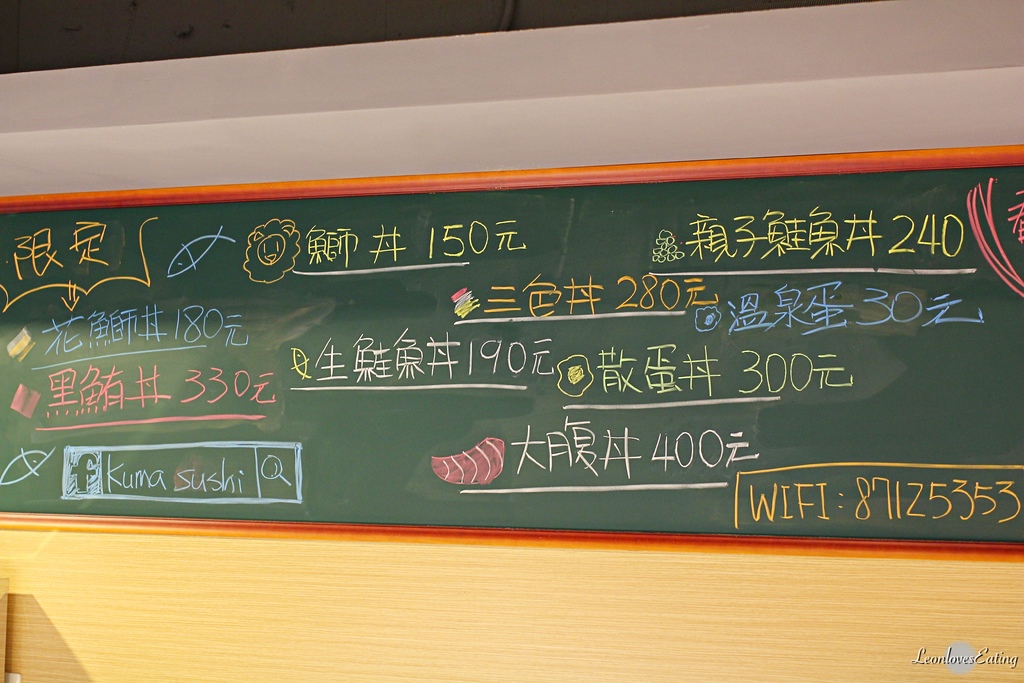 限定
花鰤丼 180元
黑鮪丼 330元
f kuma sushi
鰤丼 150元
三色丼 280元
生鮭魚丼 190元
散蛋丼 300元
大腹丼 400元
親子鮭魚丼 240
溫泉蛋 30元
WIFI : 87125353
LeonlovesEating